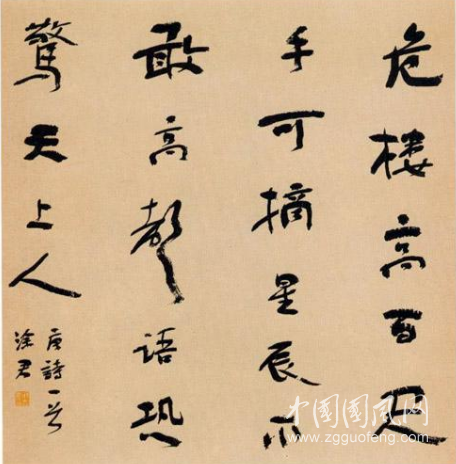 危樓高百尺
手可摘星辰不
敢高聲語恐
驚天上人
唐詩一首
涂君
中國國風网
www.zgguofeng.com